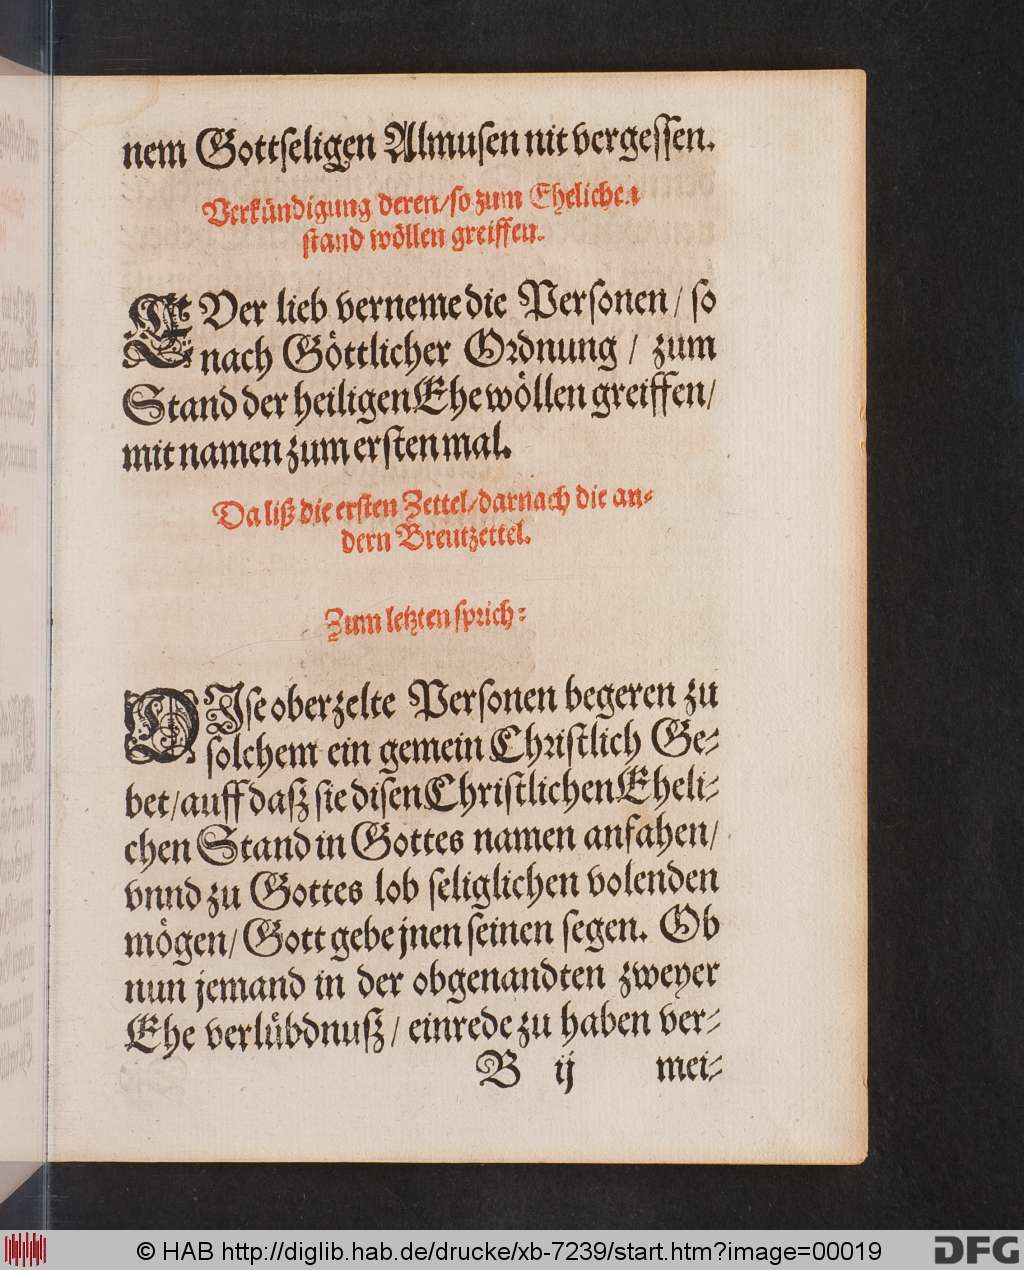 nem Gottseligen Almusen nit vergessen.
Verkündigung deren/so zum Ehelichen
stand wöllen greiffen.
EUer lieb verneme die Personen / so
nach Göttlicher Ordnung / zum
Stand der heiligen Ehe wöllen greiffen/
mit namen zum ersten mal.
Da liß die ersten Zettel/darnach die an-
dern Breutzettel.
Zum letzten sprich:
DIse oberzelte Personen begeren zu
solchem ein gemein Christlich Ge-
bet/auff daß sie disen Christlichen Eheli-
chen Stand in Gottes namen anfahen/
vnnd zu Gottes lob seliglichen volenden
mögen/ Gott gebe jnen seinen segen. Ob
nun jemand in der obgenandten zweyer
Ehe verlübdnuß / einrede zu haben ver-
B ij mei-
© HAB http://diglib.hab.de/drucke/xb-7239/start.htm?image=00019
DFG